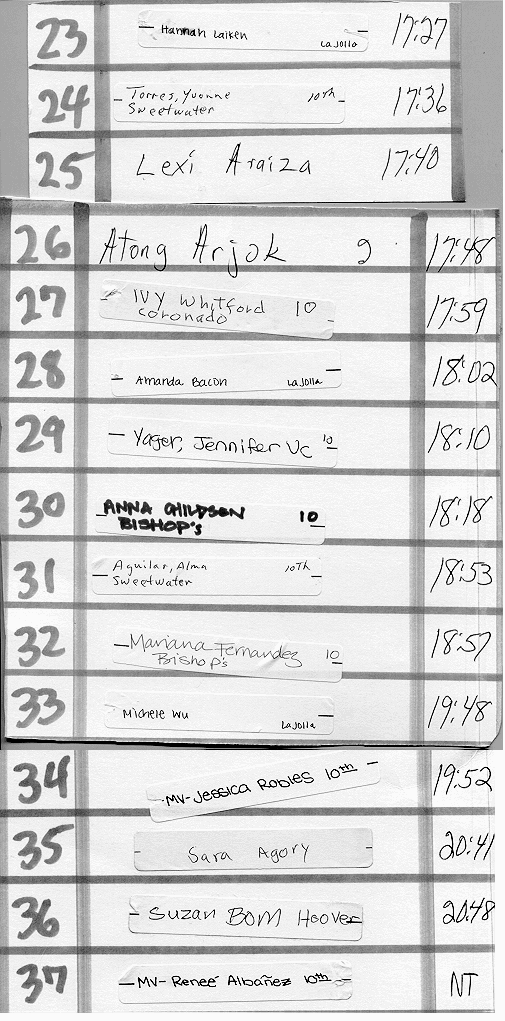 23 Hannah Laiken LaJolla 17:27
24 Torres, Yvonne 10th 17:36
Sweetwater
25 Lexi Araiza 17:40
26 Atong Arjok 9 17:48
27 Ivy Whitford 10 17:59
Coronado
28 Amanda Bacon LaJolla 18:02
29 Yager, Jennifer UC 10 18:10
30 ANNA GHILDSON 10 18:18
BISHOP's
31 Aguilar, Alma 10Th 18:53
Sweetwater
32 Mariana Fernandez 10 18:57
Bishop's
33 Michele Wu LaJolla 19:48
34 MV-Jessica Robles 10th 19:52
35 Sara Agory 20:41
36 Suzan BOM Hoover 20:48
37 MV-Reneé Albañez 10th NT